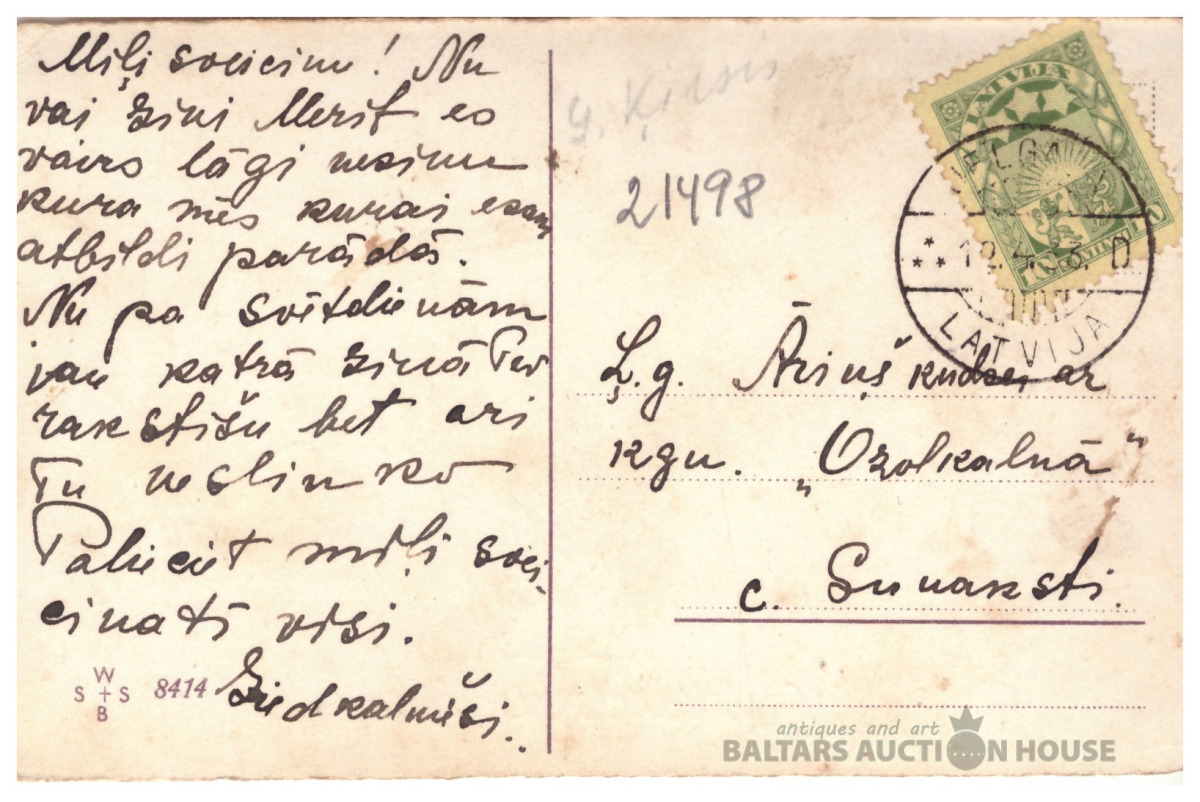 Miļi sveicinu! Nu
vai zini Merit es
vairs lāgi nezinu
kura mēs kurai esam
atbildi parādā.
Nu pa svētdienām
jau katrā ziņā Tev
rakstīšu bet ari
Tu neslinko
Palieciet miļi svei-
cinati visi.
Ziedkalnieši..
W
S + S
B
8414
G. Ķirsis
21498
LATVIJA
JELGAVA
D
LATVIJA
Ļ.g. Āriņš kundzei ar
kgu. „Ozolkalnā"
c. Sunaksti.
antiques and art
BALTARS AUCTION HOUSE